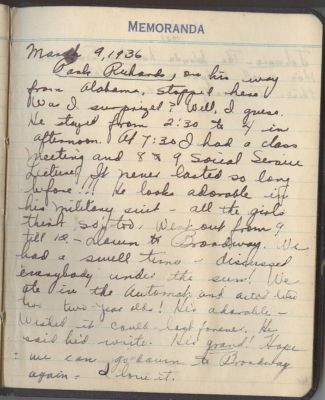 MEMORANDA
March 9, 1936
Richards, on his way
from Alabama, stopped here.
Was I surprized? Well, I guess.
He stayed from 2:30 to 4 in
afternoon. At 7:30 I had a class
meeting and 8 & 9 Social Service
Lecture. It never lasted so long
before!!! He looks adorable in
his military suit - all the girls
think so, too. Went out from 9
till 12 - down to Broadway. We
had a swell time - discussed
everybody under the sun! We
ate in the Automat and acted like
two two year olds! He's adorable -
Wished it could last forever. He
said he'd write. He's grand! Hope
we can go down to Broadway
again - I love it.